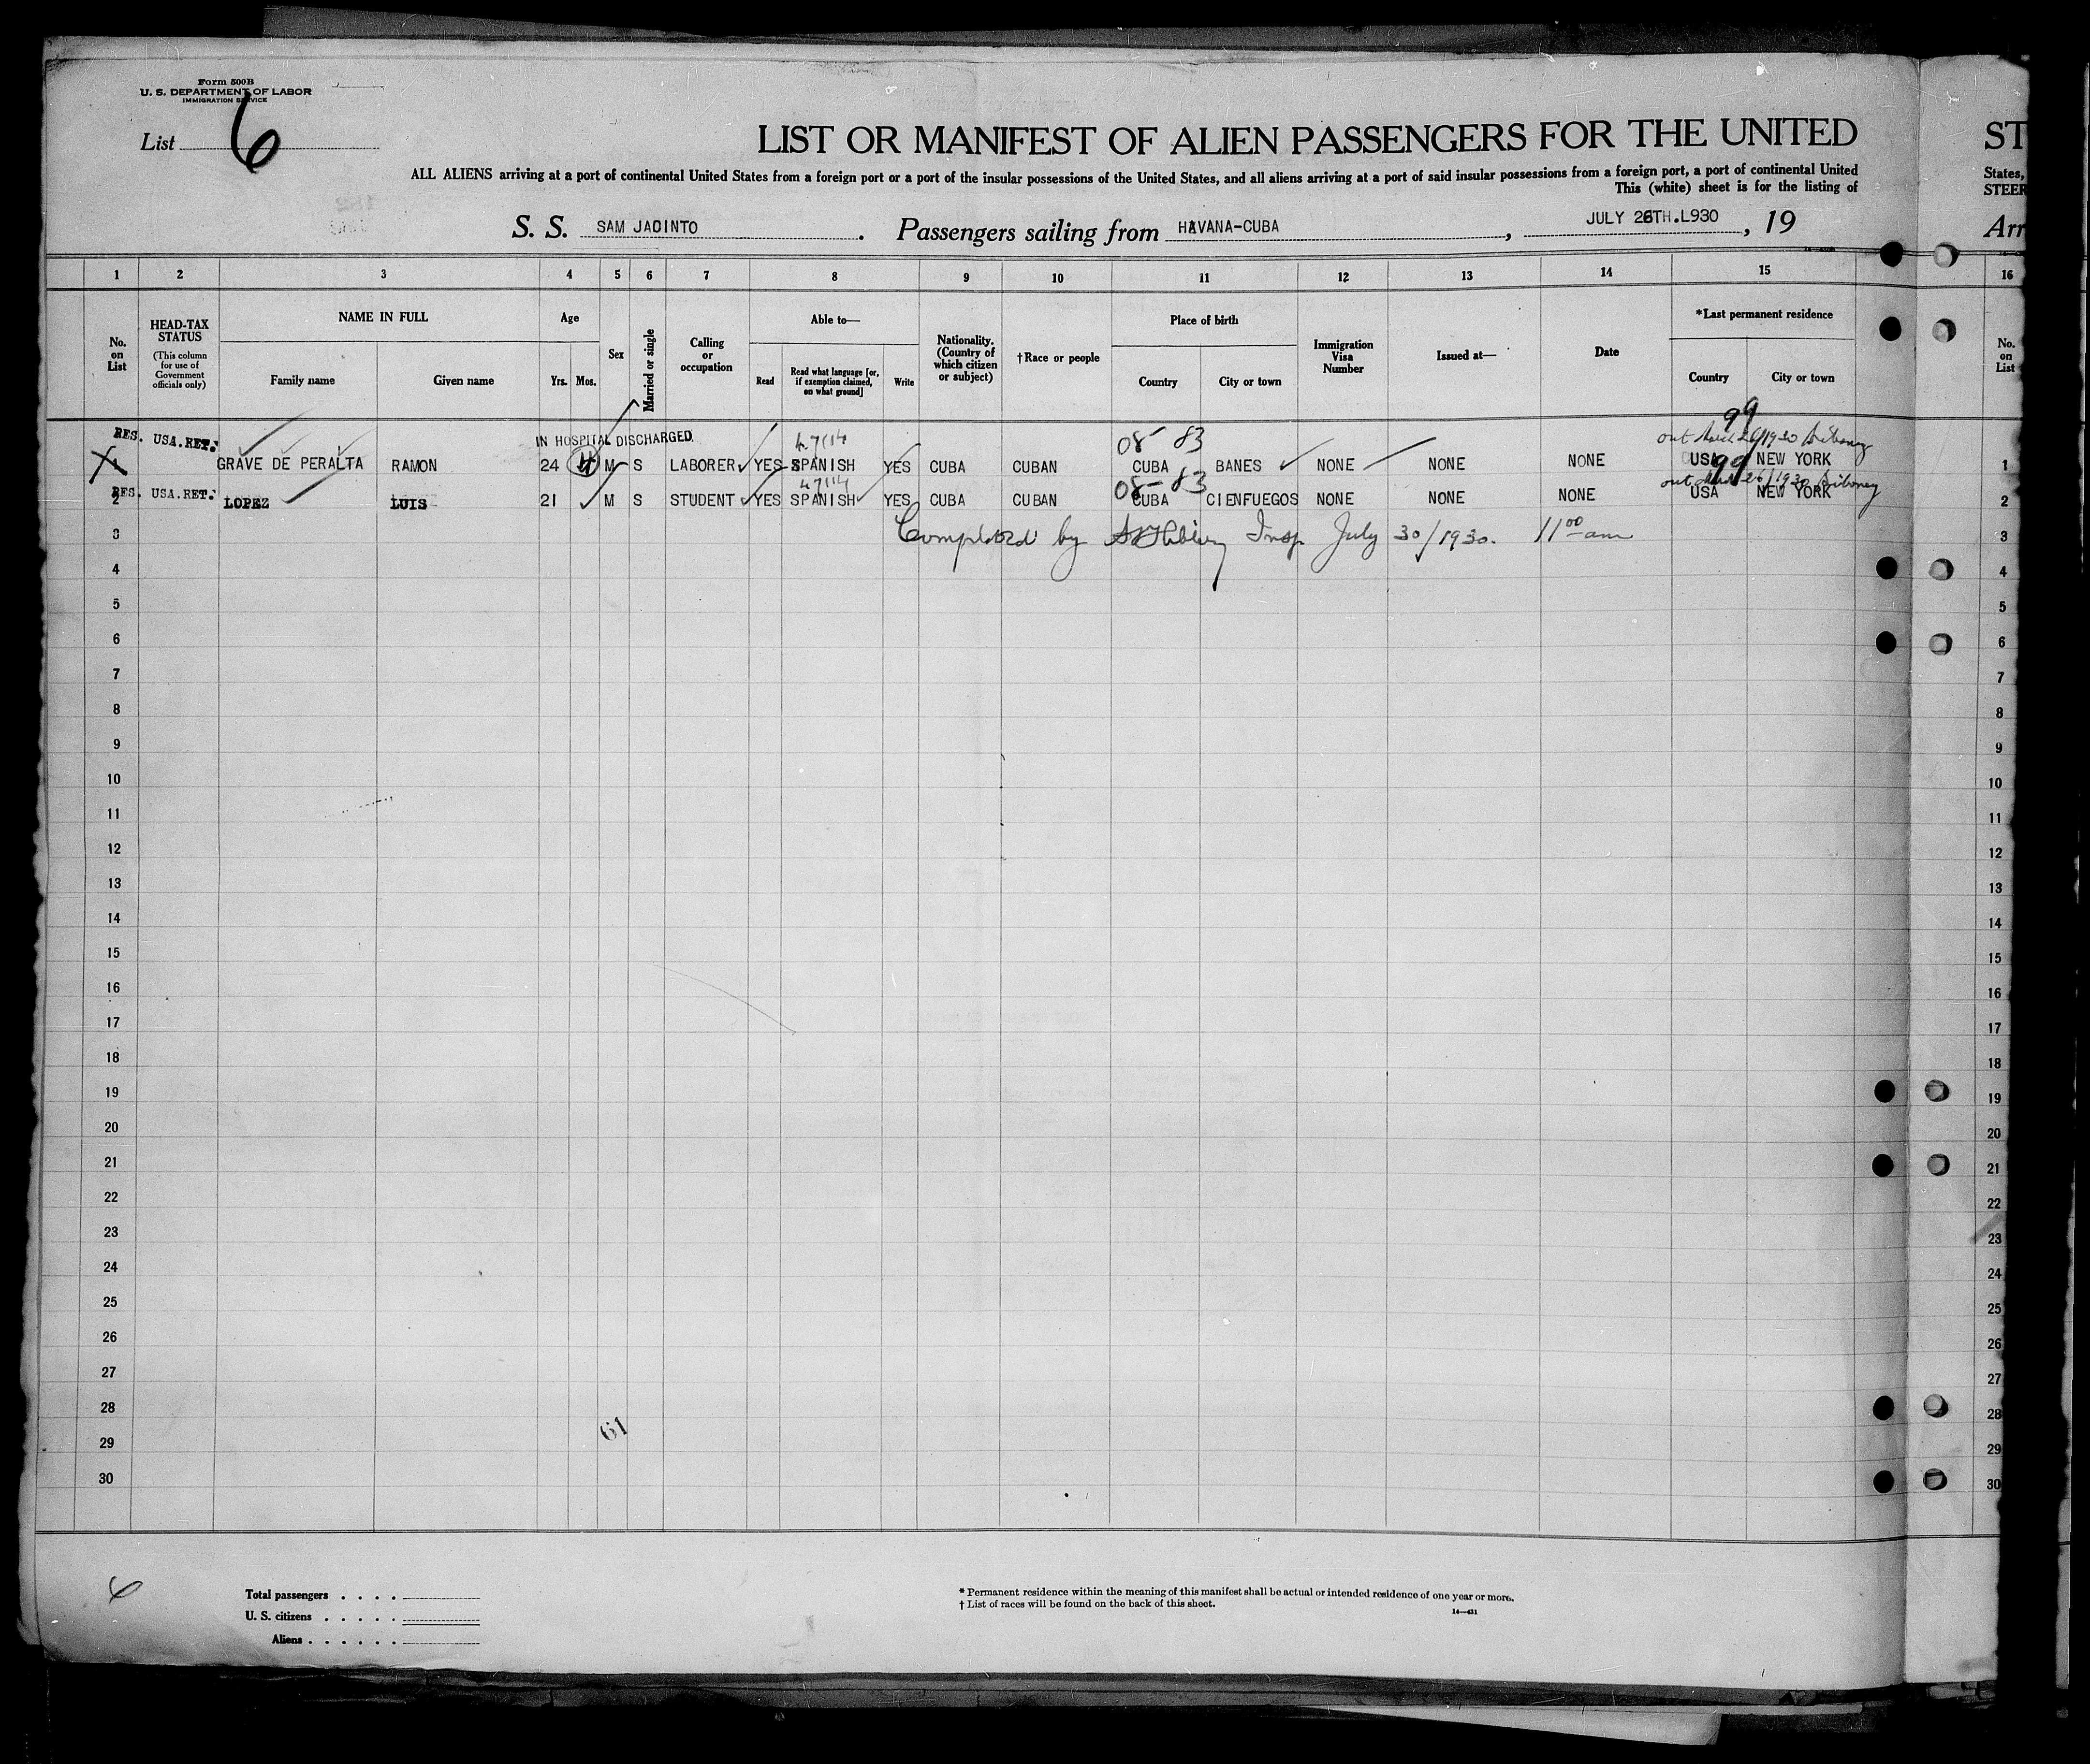 Form 500B
U. S. DEPARTMENT OF LABOR
IMMIGRATION SERVICE
List 6
LIST OR MANIFEST OF ALIEN PASSENGERS FOR THE UNITED
ST
ALL ALIENS arriving at a port of continental United States from a foreign port or a port of the insular possessions of the United States, and all aliens arriving at a port of said insular possessions from a foreign port, a port of continental United
States,
This (white) sheet is for the listing of
STEER
S. S. SAM JACINTO. Passengers sailing from HAVANA-CUBA, JULY 26TH.L930, 19
Arr
1 2 3 4 5 6 7 8 9 10 11 12 13 14 15 16
No. on List
HEAD-TAX STATUS
(This column for use of Government officials only)
NAME IN FULL
Family name Given name
Age
Yrs. Mos.
Sex
Married or single
Calling or occupation
Able to—
Read
Read what language [or, if exemption claimed, on what ground]
Write
Nationality. (Country of which citizen or subject)
†Race or people
Place of birth
Country City or town
Immigration Visa Number
Issued at—
Date
*Last permanent residence
Country City or town
No. on List
RES. USA.RET. IN HOSPITAL DISCHARGED 08 83 99
1 GRAVE DE PERALTA RAMON 24 M S LABORER YES SPANISH YES CUBA CUBAN CUBA BANES NONE NONE NONE USA NEW YORK 1
RES. USA.RET. 08-83 99
2 LOPEZ LUIS 21 M S STUDENT YES SPANISH YES CUBA CUBAN CUBA CIENFUEGOS NONE NONE NONE USA NEW YORK 2
3 Completed by Insp July 30/1930. 11 00 am 3
4 4
5 5
6 6
7 7
8 8
9 9
10 10
11 11
12 12
13 13
14 14
15 15
16 16
17 17
18 18
19 19
20 20
21 21
22 22
23 23
24 24
25 25
26 26
27 27
28 28
61
29 29
30 30
Total passengers . . . .
U. S. citizens . . . . .
Aliens . . . . . .
* Permanent residence within the meaning of this manifest shall be actual or intended residence of one year or more.
† List of races will be found on the back of this sheet.
14—431